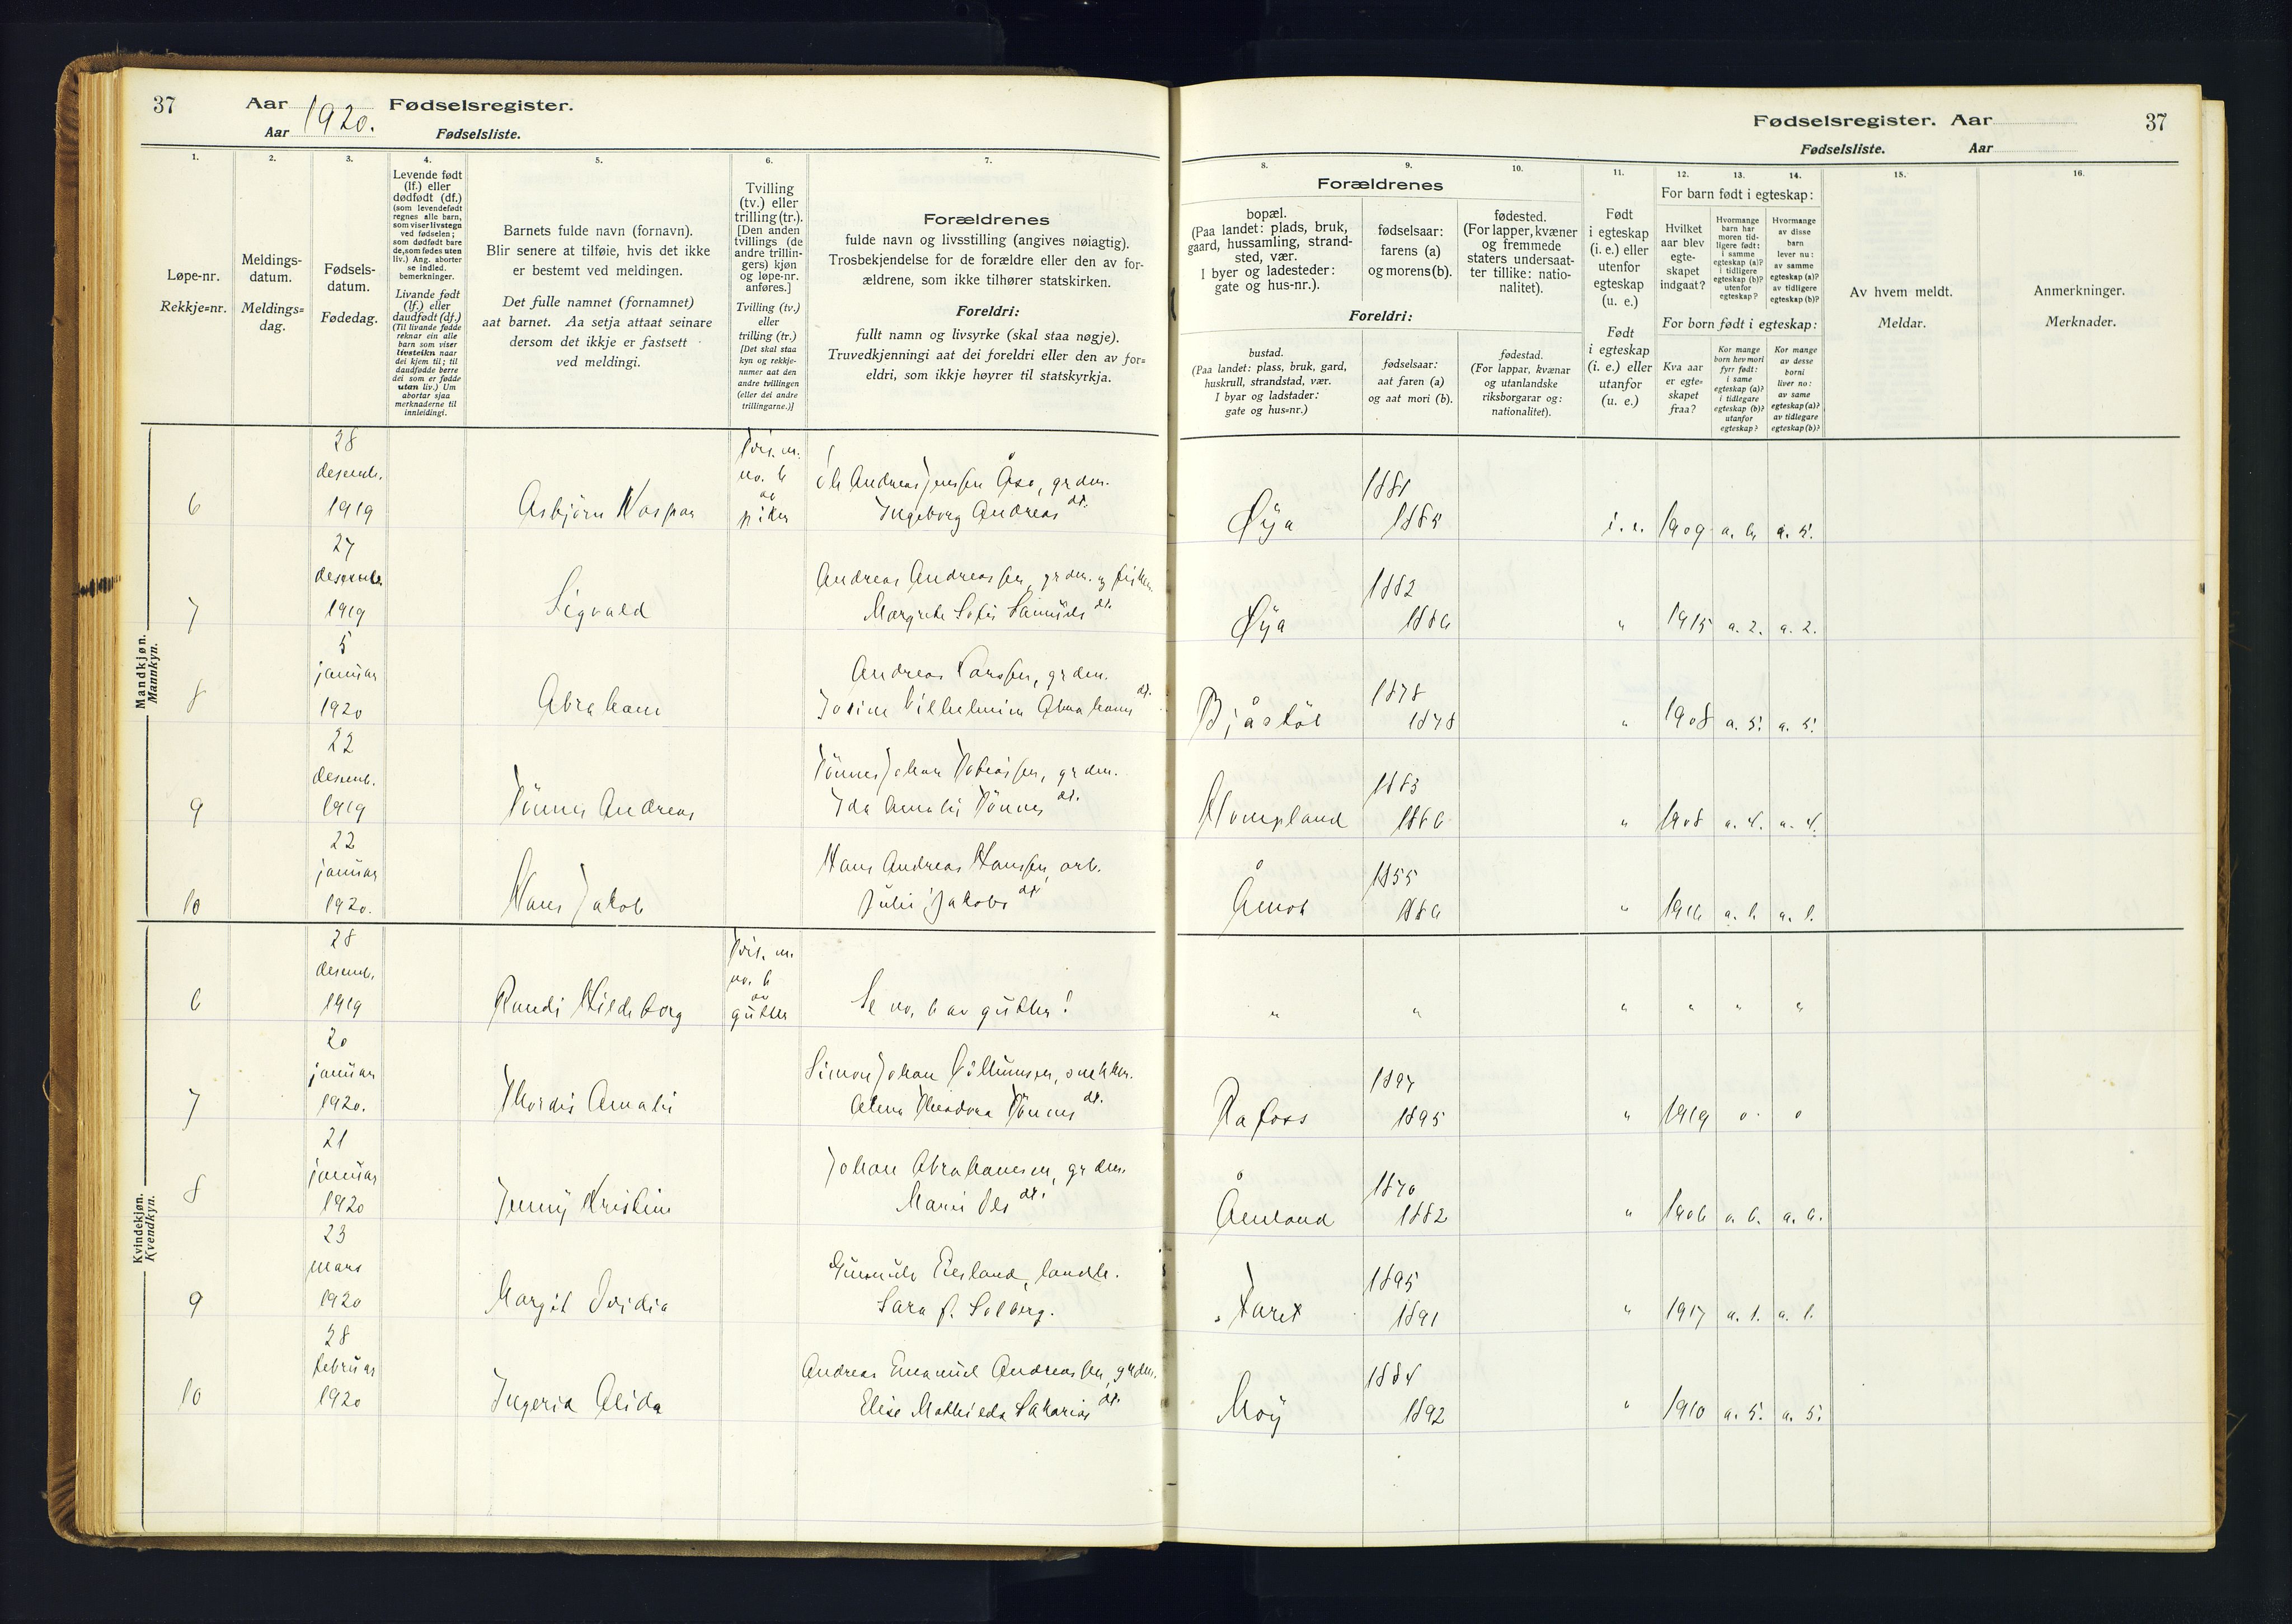 37
Aar 1920. Fødselsregister.
Aar Fødselsliste.
Fødselsregister. Aar
37
Fødselsliste. Aar
1.
Løpe-nr.
Rekkje=nr.
2.
Meldings-
datum.
Meldings=
dag.
3.
Fødsels-
datum.
Fødedag.
4.
Levende født
(lf.) eller
dødfødt (df.)
(som levendefødt
regnes alle barn,
som viser livstegn
ved fødselen;
som dødfødt bare
de, som fødes uten
liv.) Ang. aborter
se indled.
bemerkninger.
Livande født
(lf.) eller
daudfødt (df.)
(Til livande fødde
reknar ein alle
barn som viser
livsteikn naar
dei kjem til; til
daudfødde berre
dei som er fødde
utan liv.) Um
abortar sjaa
merknaderne til
innleidingi.
5.
Barnets fulde navn (fornavn).
Blir senere at tilføie, hvis det ikke
er bestemt ved meldingen.
Det fulle namnet (fornamnet)
aat barnet. Aa setja attaat seinare
dersom det ikkje er fastsett
ved meldingi.
6.
Tvilling
(tv.) eller
trilling (tr.).
[Den anden
tvillings (de
andre trillin-
gers) kjøn
og løpe-nr.
anføres.]
Tvilling (tv.)
eller
trilling (tr.)
[Det skal staa
kyn og rekkje-
numer aat den
andre tvillingen
(eller dei andre
trillingarne.)]
7.
Forældrenes
fulde navn og livsstilling (angives nøiagtig).
Trosbekjendelse for de forældre eller den av for-
ældrene, som ikke tilhører statskirken.
Foreldri:
fullt namn og livsyrke (skal staa nøgje).
Truvedkjenningi aat dei foreldri eller den av for=
eldri, som ikkje høyrer til statskyrkja.
8.
Forældrenes
bopæl.
(Paa landet: plads, bruk,
gaard, hussamling, strand-
sted, vær.
I byer og ladesteder:
gate og hus-nr.).
Foreldri:
bustad.
(Paa landet: plass, bruk, gard,
huskrull, strandstad, vær.
I byar og ladstader:
gate og hus=nr.)
9.
fødselsaar:
farens (a)
og morens (b).
fødselsaar:
aat faren (a)
og aat mori (b).
10.
fødested.
(For lapper, kvæner
og fremmede
staters undersaat-
ter tillike: natio-
nalitet).
fødestad.
(For lappar, kvænar
og utanlandske
riksborgarar og:
nationalitet).
11.
Født
i egteskap
(i. e.) eller
utenfor
egteskap
(u. e.)
Født
i egteskap
(i. e.) eller
utanfor
(u. e.)
12. 13. 14.
For barn født i egteskap:
Hvilket
aar blev
egte-
skapet
indgaat?
Hvormange
barn har
moren tid-
ligere født:
i samme
egteskap (a)?
i tidligere
egteskap (b)?
utenfor
egteskap?
Hvormange
av disse
barn
lever nu:
av samme
egteskap (a)?
av tidligere
egteskap (b)?
For born født i egteskap:
Kva aar
er egte=
skapet
fraa?
Kor mange
born hev mori
fyrr født:
i same
egteskap (a)?
i tidlegare
egteskap (b)?
utanfor
egteskap?
Kor mange
av desse
borni
liver no:
av same
egteskap (a)?
av tidlegare
egteskap (b)?
15.
Av hvem meldt.
Meldar.
16.
Anmerkninger.
Merknader.
Mandkjøn.
Mannkyn.
6
28
desemb.
1919
Asbjørn Kaspar
Tvil. m.
no. 6
av
piker
Ole Andreas Jenssen Åse, grdm.
Ingeborg Andreasdt.
Øya
1881
1885
i. e. 1909 a. 6 a. 5.
7
27
desemb.
1919
Sigvald
Andreas Andreassen, grdm. og fisker.
Margrete Sofie Samuelsdt.
Øya
1882
1886
" 1915 a. 2. a. 2.
8
5
januar
1920
Abraham
Andreas Larssen, grdm.
Josine Vilhelmine Abrahamsdt.
Bjåstøl
1878
1878
" 1908 a. 5. a. 5.
9
22
desemb.
1919
Tønnes Andreas
Tønnes Johan Tobiassen, grdm.
Ida Amalie Tønnesdt.
1883
1886
" 1908 a. 4. a. 4.
10
22
januar
1920.
Hans Jakob
Hans Andreas Hanssen, arb.
Julie Jakobsdt.
Åmot
1855
1886
" 1916 a. 1. a. 1.
Kvindekjøn.
Kvendkyn.
6
28
desemb.
1919
Randi Hildeborg
Tvil. m.
no. 6
av
gutter
Se no. 6 av gutter!
" " " " " "
7
20
januar
1920.
Thordis Amalie
Simon Johan Villumsen, snekker.
Alma Theodora Tønnesdt.
Rafoss
1897
1895
" 1919 0 0
8
21
januar
1920
Jenny Kristine
Johan Abrahamsen, grdm.
Marie Olsdt.
Åmland
1870
1882
" 1906 a. 6. a. 6.
9
23
mars
1920
Margit Ovidia
Gunnuls Eiesland, landh.
Sara f. Solberg.
1895
1891
" 1917 a. 1. a. 1.
10
28
februar
1920
Ingerid Alida
Andreas Emanuel Andreassen, grdm.
Elise Mathilde Sakariasdt.
Moÿ
1884
1892
" 1910 a. 5. a. 5.